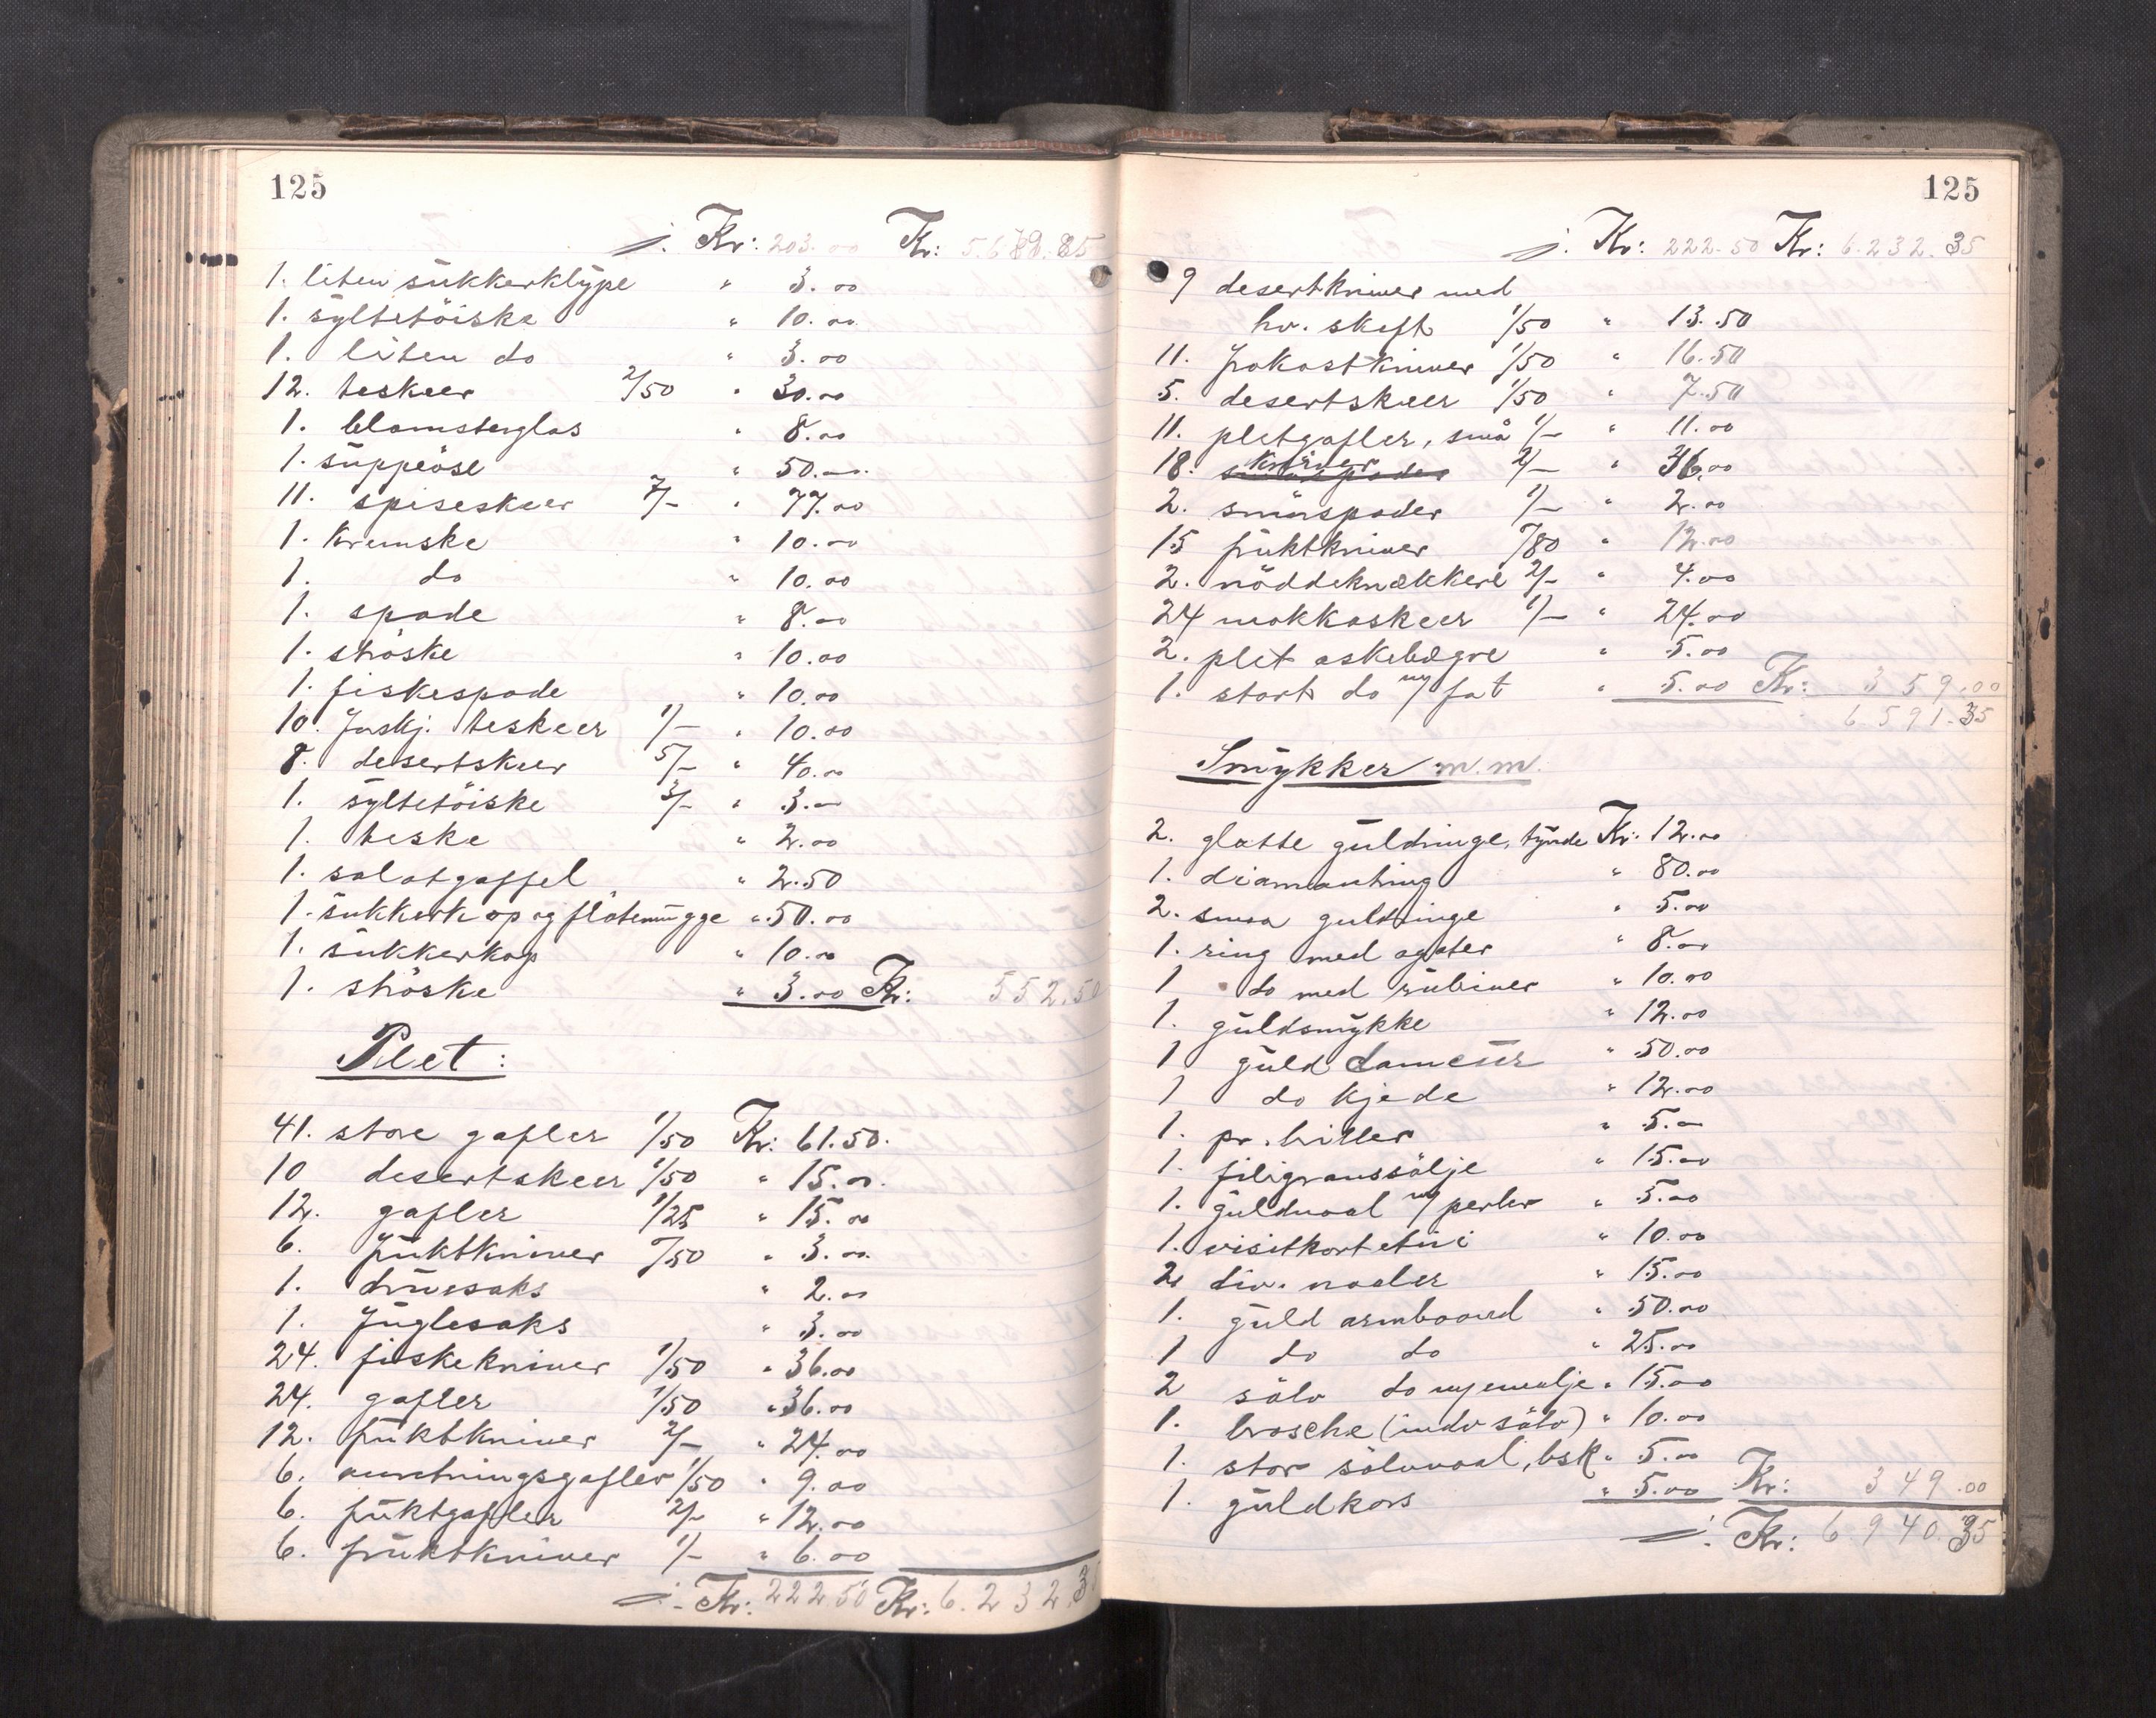 125
÷. Kr: 203.00 Kr: 5.679.85
1. liten sukkerklype " 3.00
1. syltetöiske " 10.00
1. liten do " 3.00
12. teskeer 2/50 " 30.00
1. blomsterglas " 8.00
1. suppeöse " 50.00
11. spiseskeer 7/- " 77.00
1. Kremske " 10.00
1. do " 10.00
1. spade " 8.00
1. ströske " 10.00
1. fiskespade " 10.00
10. forskj. teskeer 1/- " 10.00
8. desertskeer 5/- " 40.00
1. syltetöiske 3/- " 3.00
1. teske " 2.00
1. salatgaffel " 2.50
1. sukkerkop og flötemugge " 50.00
1. sukkerkop " 10.00
1. ströske " 3.00 Kr: 552.50
Plet:
41. store gafler 1/50 Kr: 61.50.
10 desertskeer 1/50 " 15.00.
12. gafler 1/25 " 15.00
6. fruktkniver -/50 " 3.00
1. druesaks " 2.00
1. fuglesaks " 3.00
24. fiskekniver 1/50 " 36.00
24. gafler 1/50 " 36.00
12. fruktkniver 2/- " 24.00
6. anretningsgafler 1/50 " 9.00
6. fruktgafler 2/- " 12.00
6. fruktkniver 1/- " 6.00
÷. Kr: 222.50 Kr: 6.232.35
125
÷. Kr: 222.50 Kr: 6.232.35
9 desertkniver med
hv. skaft 1/50 " 13.50
11. frokostkniver 1/50 " 16.50
5. desertskeer 1/50 " 7.50
11. pletgafler, små 1/- " 11.00
18. kniver 2/- " 36.00
2. smörspader 1/- " 2.00
15 fruktkniver -/80 " 12.00
2. nöddeknækkere 2/- " 4.00
24 mokkaskeer 1/- " 24.00
2. plet askebægre " 5.00
1. stort do m/ fat " 5.00 Kr: 359.00
6.591.35
Smykker m.m.
2. glatte guldringe, tynde Kr: 12.00
1. diamantring " 80.00
2. smaa guldringe " 5.00
1. ring med agater " 8.00
1 do med rubiner " 10.00
1. guldsmykke " 12.00
1 guld dameur " 50.00
1 do kjede " 12.00
1. pr. briller " 5.00
1. filigranssölje " 15.00
1. guldnaal m/ perler " 5.00
1. visitkortetui " 10.00
2. div. naaler " 15.00
1. guld armbaand " 50.00
1 do do " 25.00
2 sölv do m/emalje " 15.00
1. brosche (indv sölv) " 10.00
1. stor sölvnaal, bsk " 5.00
1. guldkors " 5.00 Kr: 349.00
÷. Kr: 6.940.35